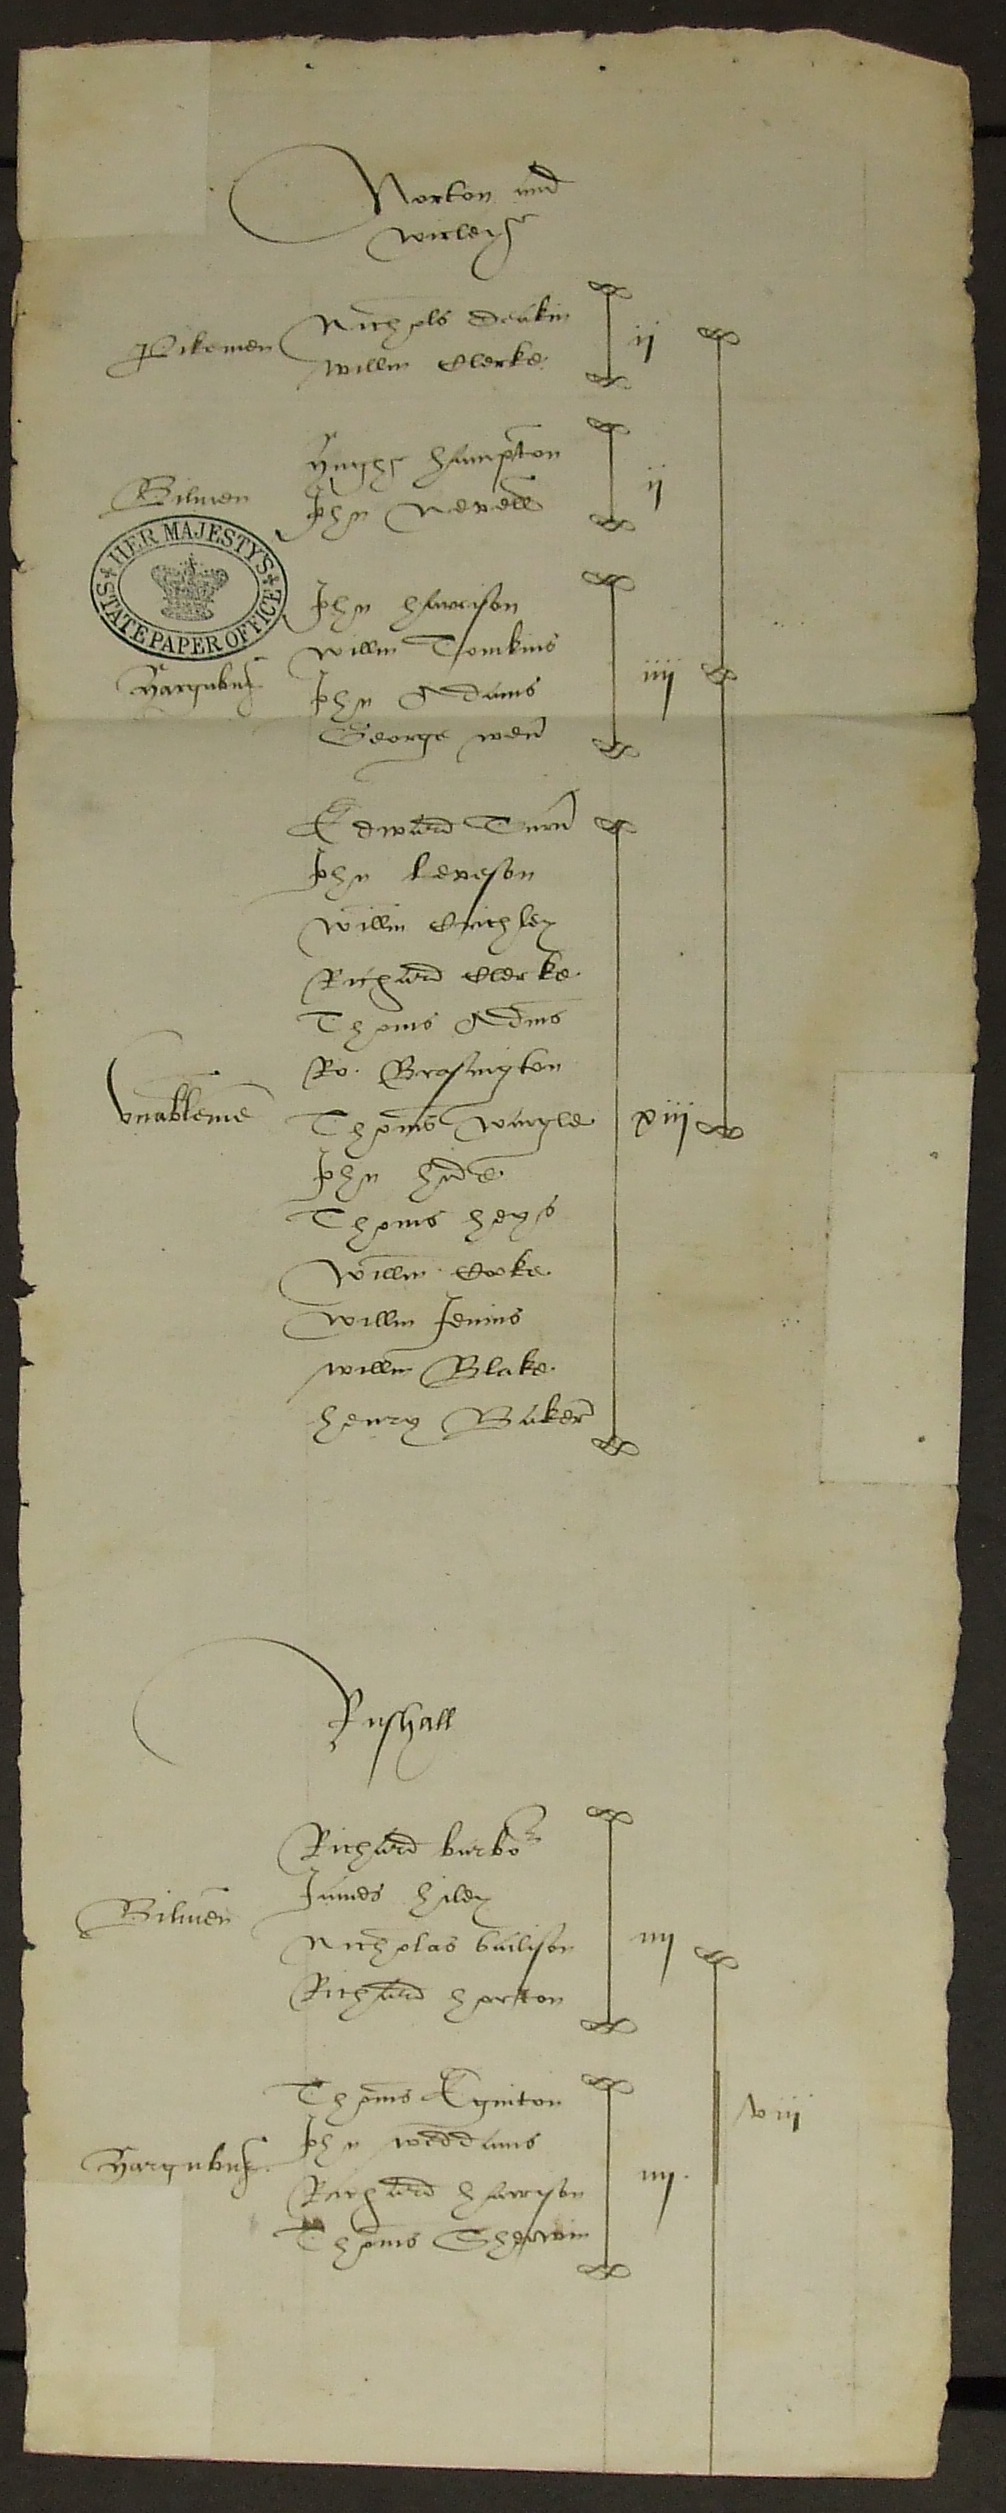 Norton and
wirley
Pikemen
Nichols Deakin
Willm Clerke
ij
Bilmen
Hughe Hampton
John Nevell
ij
HER MAJESTY'S STATE PAPER OFFICE
Harqubuz
John Harrison
Willm Tomkins
John Adams
George wen
iiij
Vnablemen
Edward Turn
John Leveson
Willm Crichley
Richard Clerke
Thoms Adms
Ro. Brasington
Thoms
John hide
Thoms heys
Willm Cooke
Willm Jenins
willm Blake
henry Baker
xiij
Rushall
Bilmen
Richard burbo
James hiley
Nicholas bailison
Richard horton
iiij
Harqubuz
Thoms Eginton
John weddams
Richard Harryson
Thoms Sherwin
iiij
viij